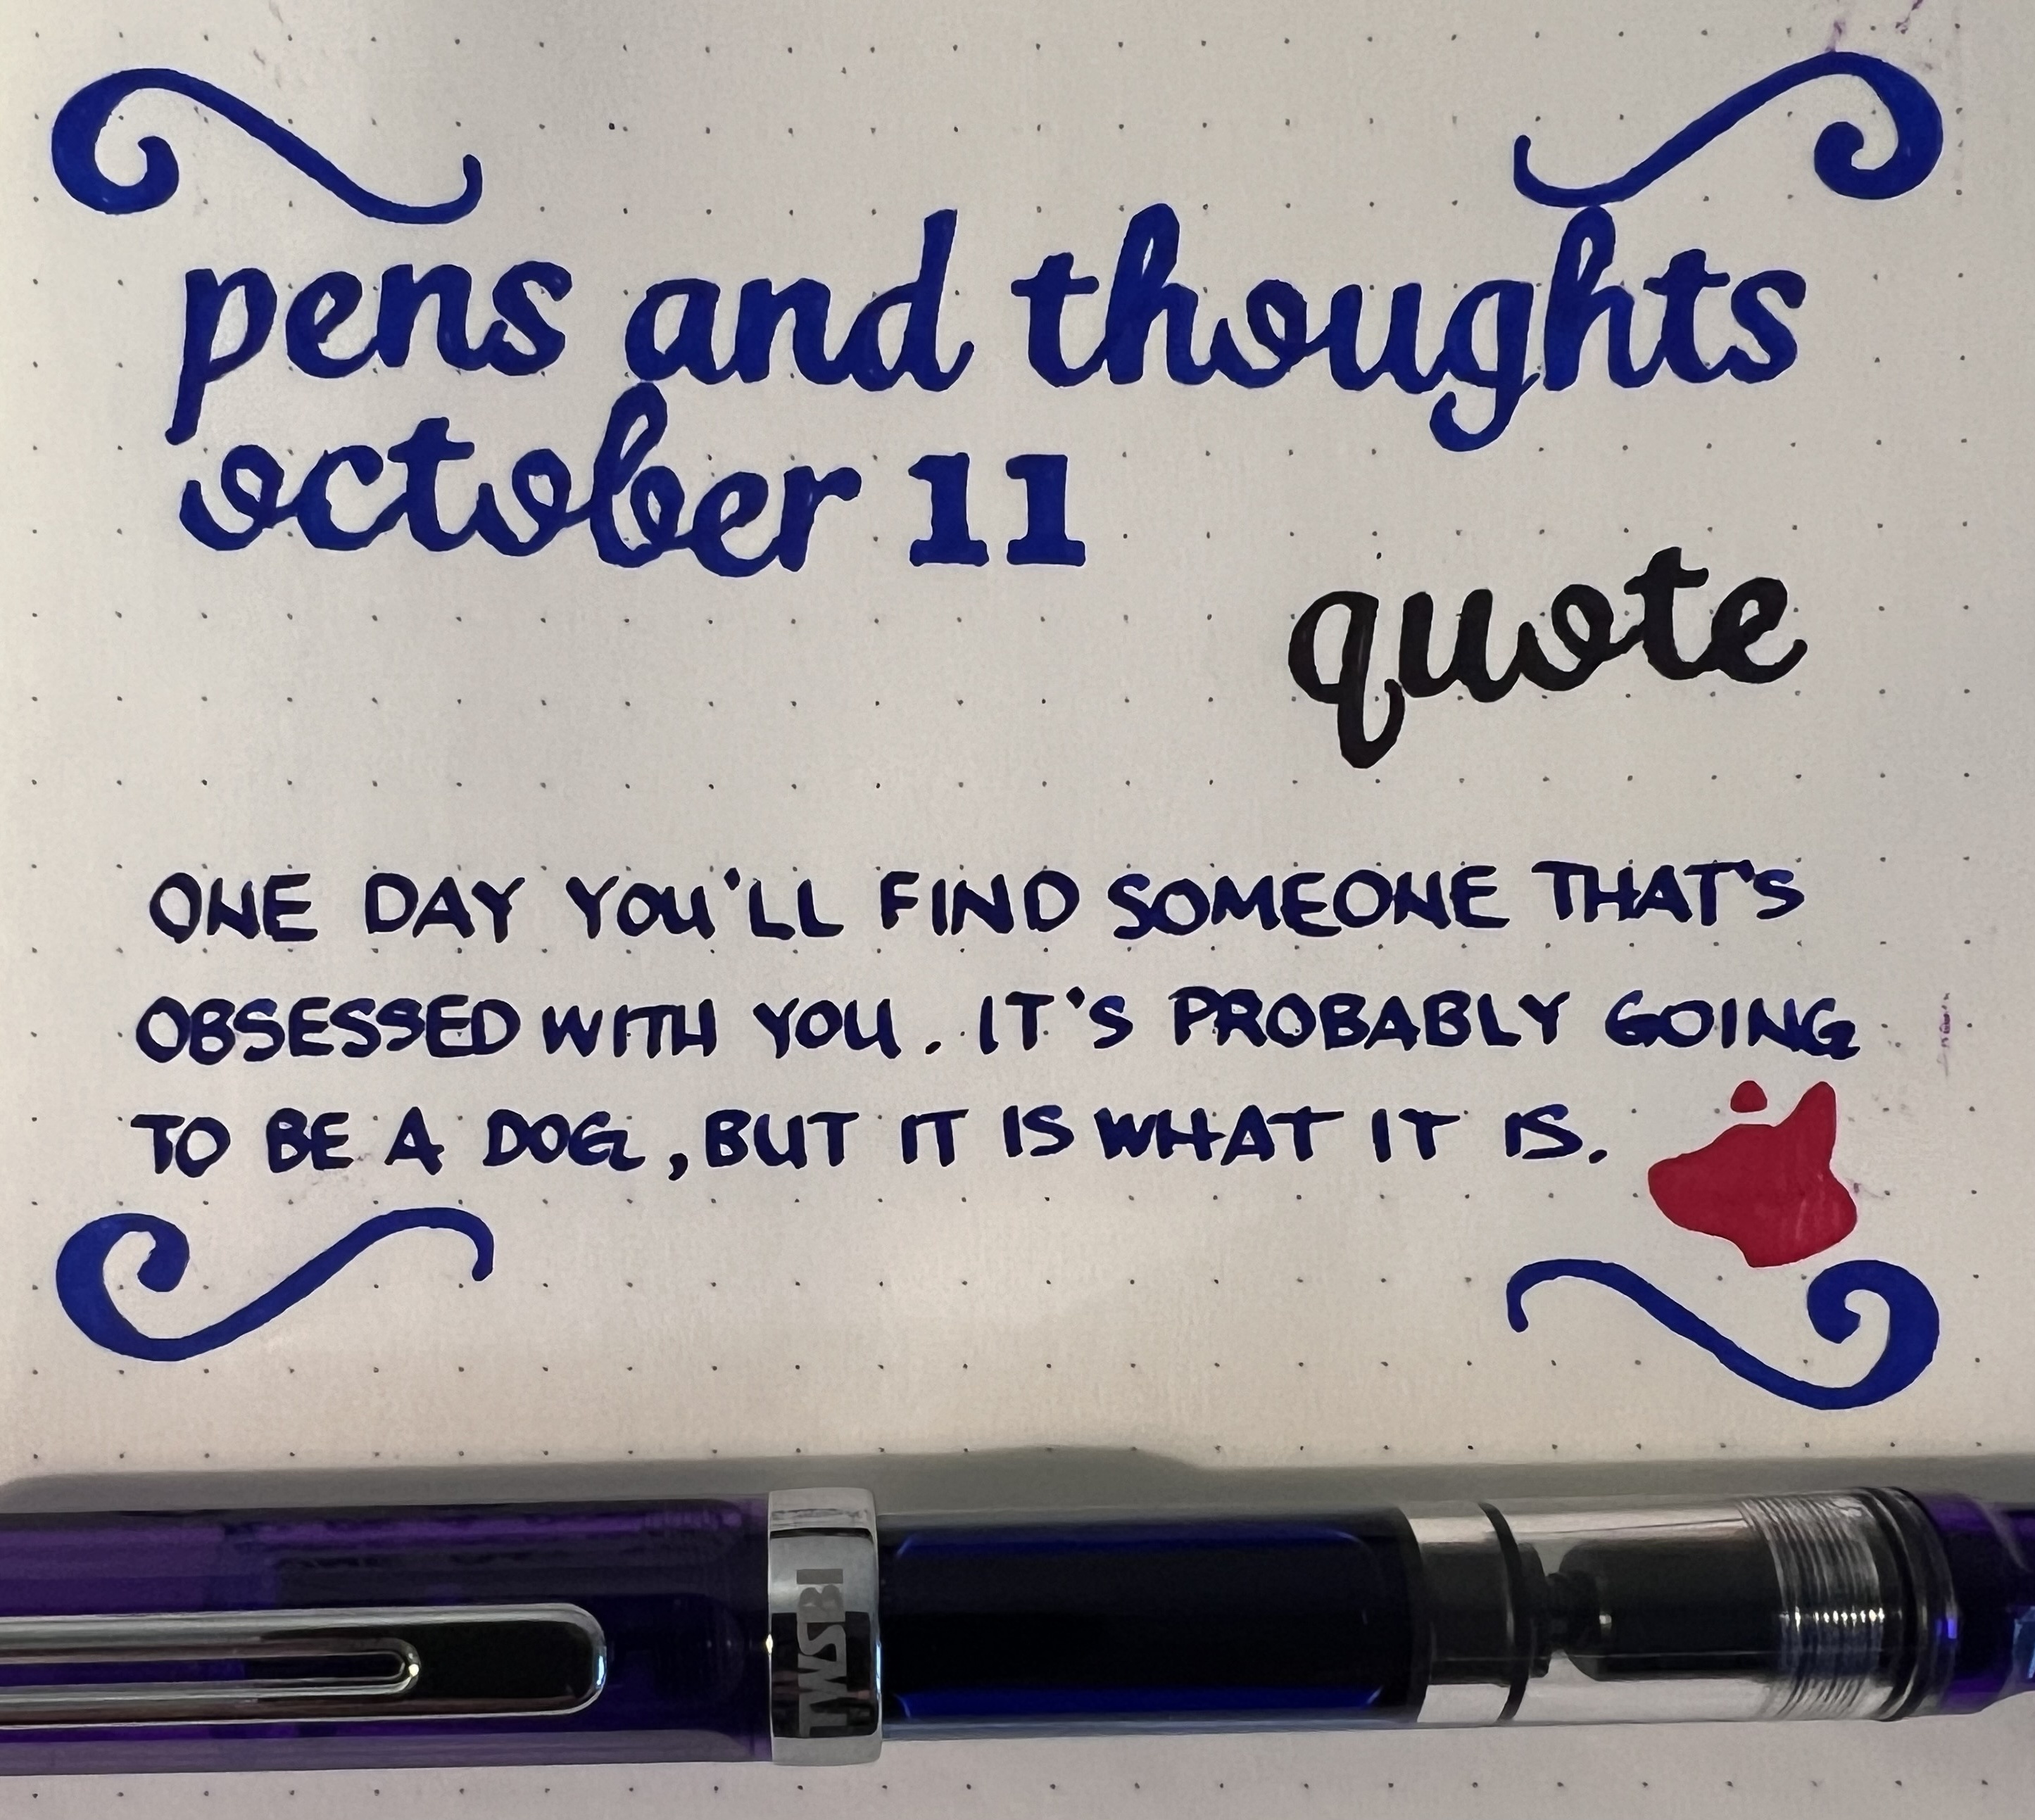 pens and thoughts
october 11
quote
ONE DAY YOU'LL FIND SOMEONE THAT'S
OBSESSED WITH YOU. IT'S PROBABLY GOING
TO BE A DOG, BUT IT IS WHAT IT IS.
TWSBI